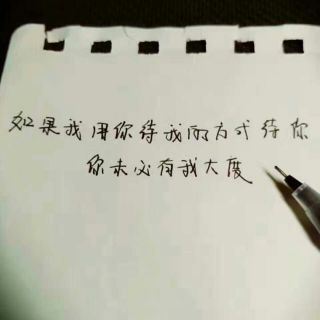 如果我用你待我的方式待你
你未必有我大度